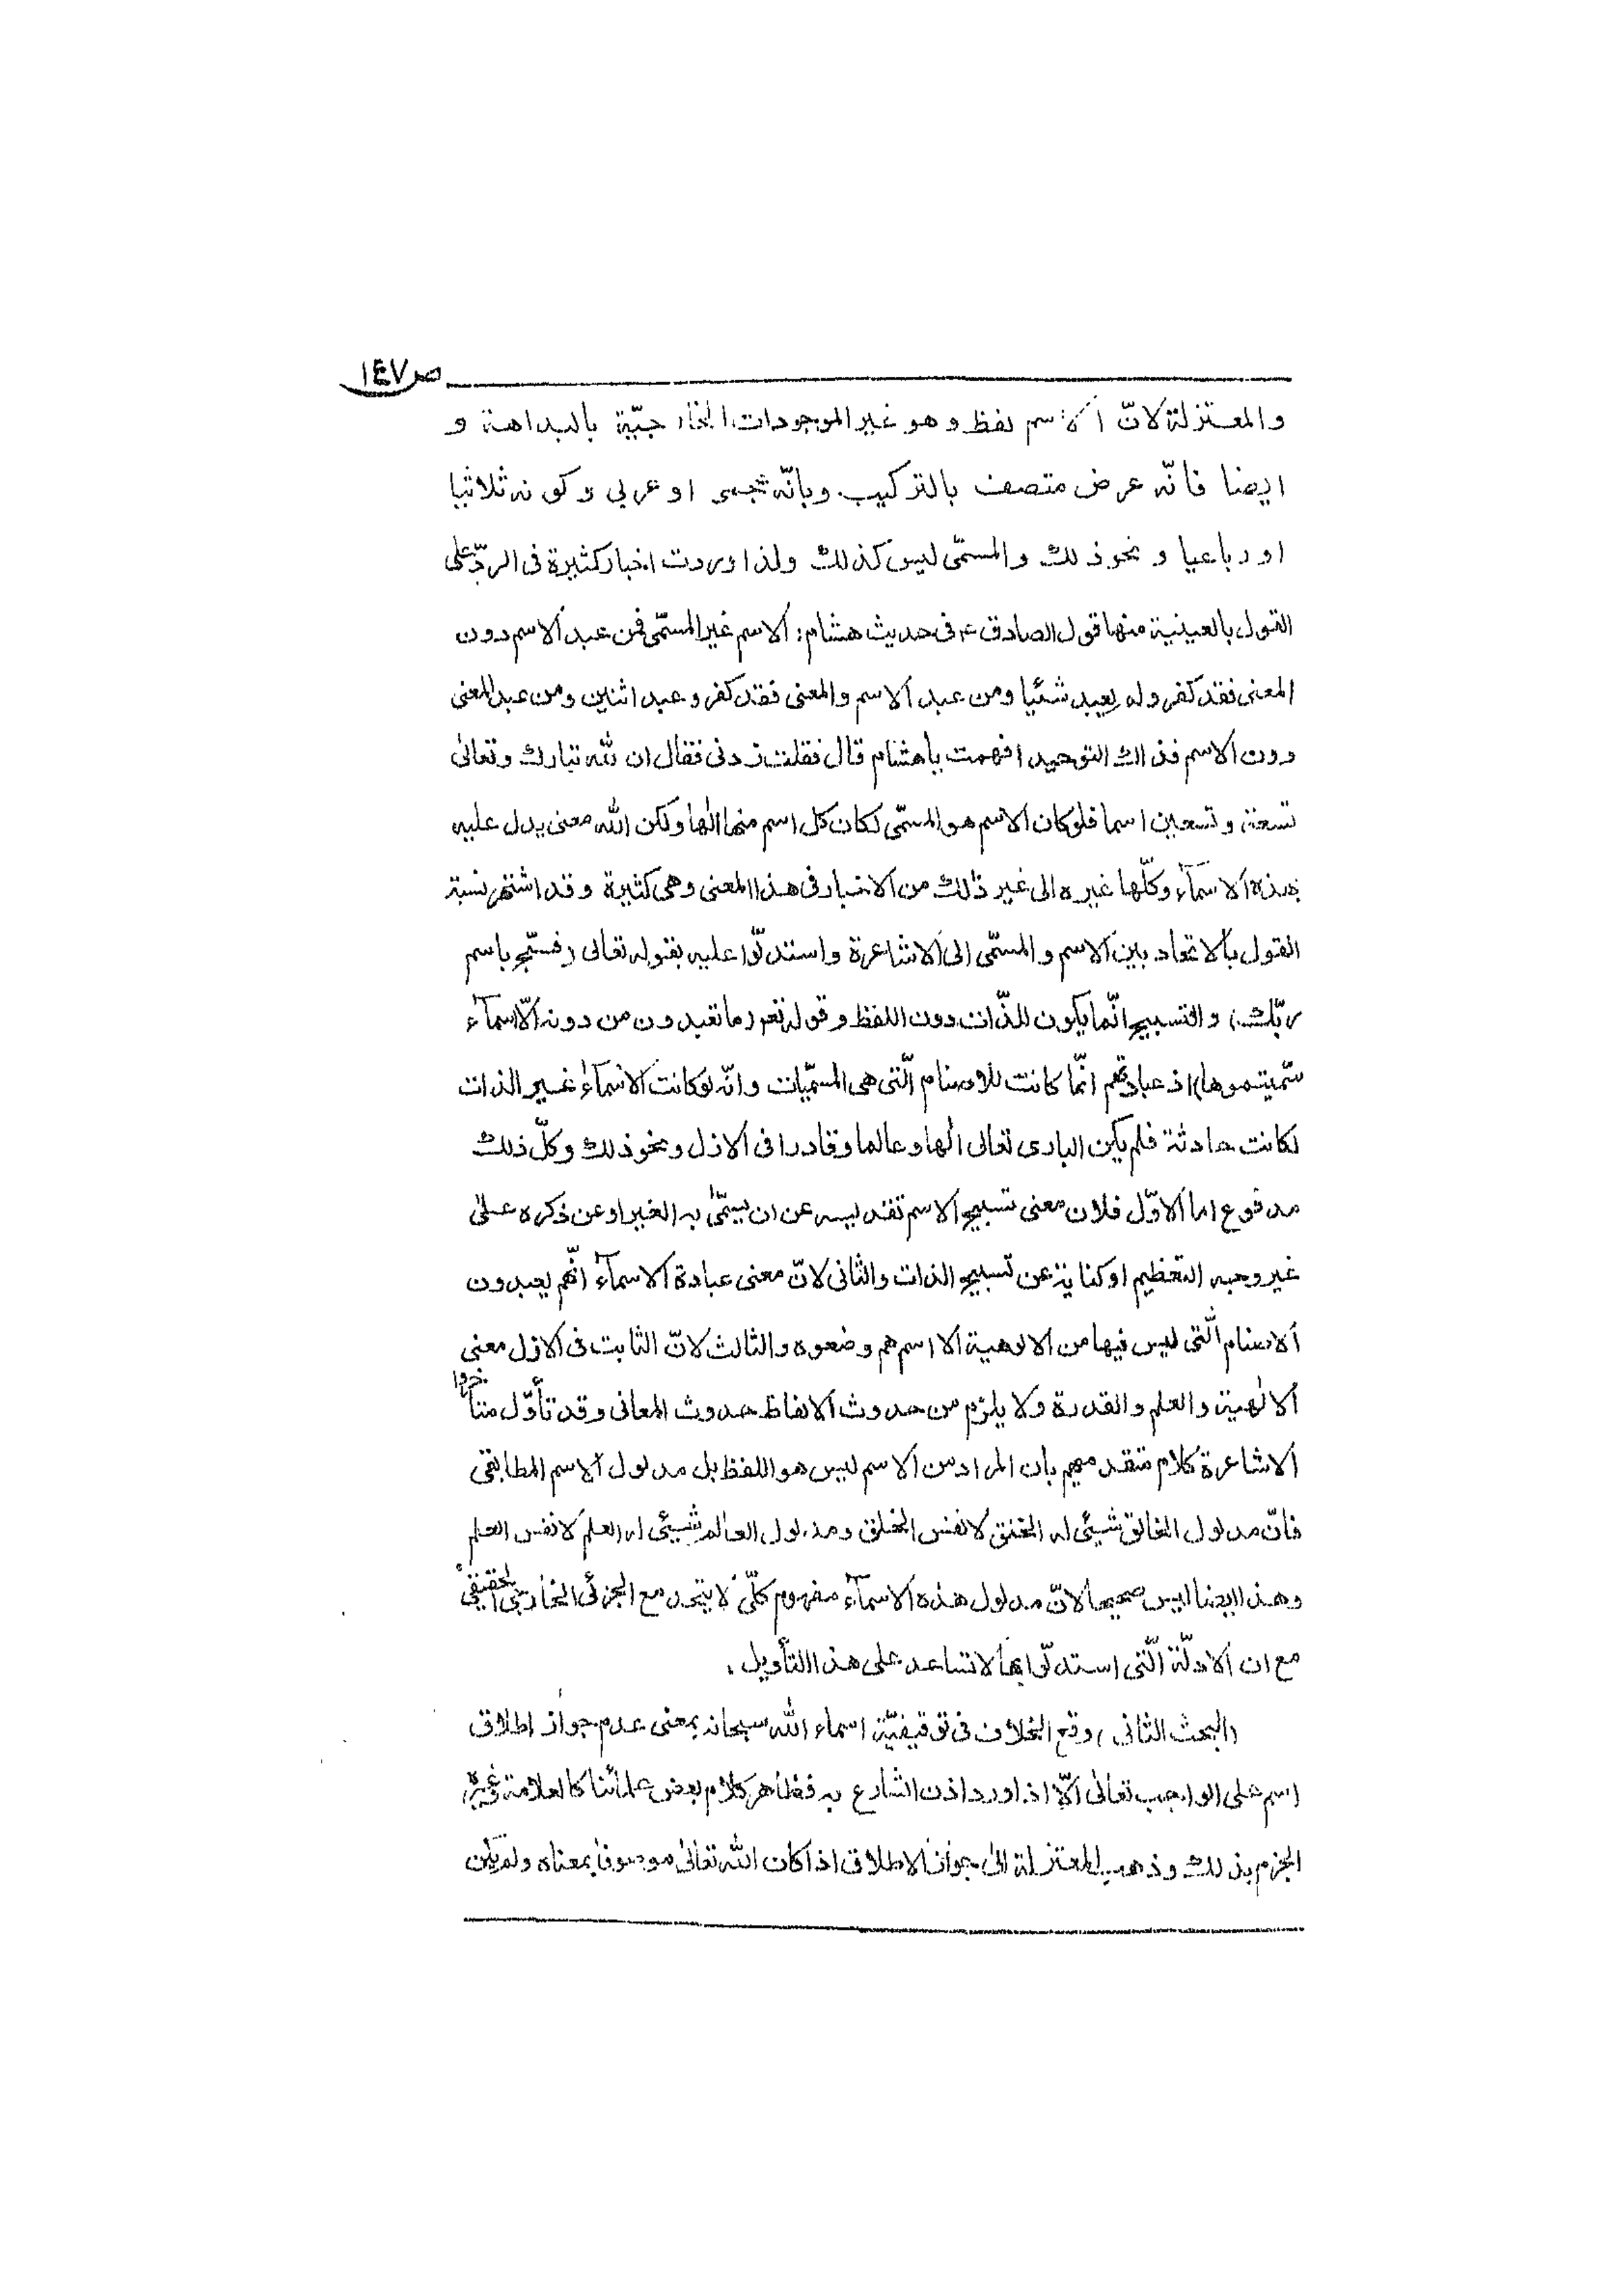 ص ١٤٧
والمعتزلة لانّ الاسم لفظ وهو غير الموجودات الخارجيّة بالبداهة و
ايضا فانّه عرض متصف بالتركيب وبانّه عجمى او عربي وكونه ثلاثيا
او رباعيا و نحوذلك والمسمّى ليس كذلك ولذا وردت اخبار كثيرة فى الردّ على
القول بالعينية منها قول الصادق ع فى حديث هشام: الاسم غير المسمّى فمن عبد الاسم دون
المعنى فقد كفر ولم يعبد شئيا ومن عبد الاسم والمعنى فقد كفر وعبد اثنين ومن عبد المعنى
دون الاسم فذاك التوحيد افهمت ياهشام قال فقلت زدنى فقال ان لله تبارك وتعالى
تسعة وتسعين اسما فلوكان الاسم هو المسمّى لكان كل اسم منها الٰها ولكن الله معنى يدل عليه
بهذه الاسمآء وكلّها غيره الى غير ذلك من الاخبار فى هذا المعنى وهى كثيرة وقد اشتهر نسبة
القول بالاتحاد بين الاسم والمسمّى الى الاشاعرة واستدلّوا عليه بقوله تعالى (فسبّح باسم
ربّك) والتسبيح انّما يكون للذّات دون اللفظ وقوله تعم (ما تعبدون من دونه الّا اسمآء
سمّيتموها) اذ عبادتهم انّما كانت للاصنام الّتى هى المسمّيات وانّه لوكانت الاسمآء غير الذات
لكانت حادثة فلم يكن البارى تعالى الٰها وعالما وقادرا فى الازل ونحوذلك وكلّ ذلك
مدفوع اما الاوّل فلان معنى تسبيح الاسم تقديسه عن ان يسمّى به الغير او عن ذكره على
غير وجه التعظيم او كناية عن تسبيح الذات والثانى لانّ معنى عبادة الاسمآء انّهم يعبدون
الاصنام الّتى ليس فيها من الالوهية الا اسم هم وضعوه والثالث لانّ الثابت فى الازل معنى
الالٰهية والعلم والقدرة ولا يلزم من حدوث الالفاظ حدوث المعانى وقد تأوّل متأخروا
الاشاعرة كلام متقدميهم بان المراد من الاسم ليس هو اللفظ بل مدلول الاسم المطابقى
فانّ مدلول الخالق شيئى له الخلق لانفس الخلق ومدلول العالم شيئى له العلم لانفس العلم
وهذا ايضا ليس صحيحا لانّ مدلول هذه الاسمآء مفهوم كلّىّ لا يتحد مع الجزئى الخارجى الحقيقى
مع ان الادلّة الّتى استدلّوا بها لاتساعد على هذا التأويل.
(البحث الثانى) وقع الخلاف فى توقيفيّة اسماء الله سبحانه بمعنى عدم جواز اطلاق
اسم على الواجب تعالى الّا اذا ورد اذن الشارع به فظاهر كلام بعض علمائنا كالعلامة وغيره
الجزم بذلك وذهب المعتزلة الى جواز الاطلاق اذا كان الله تعالى موصوفا بمعناه ولم يكن